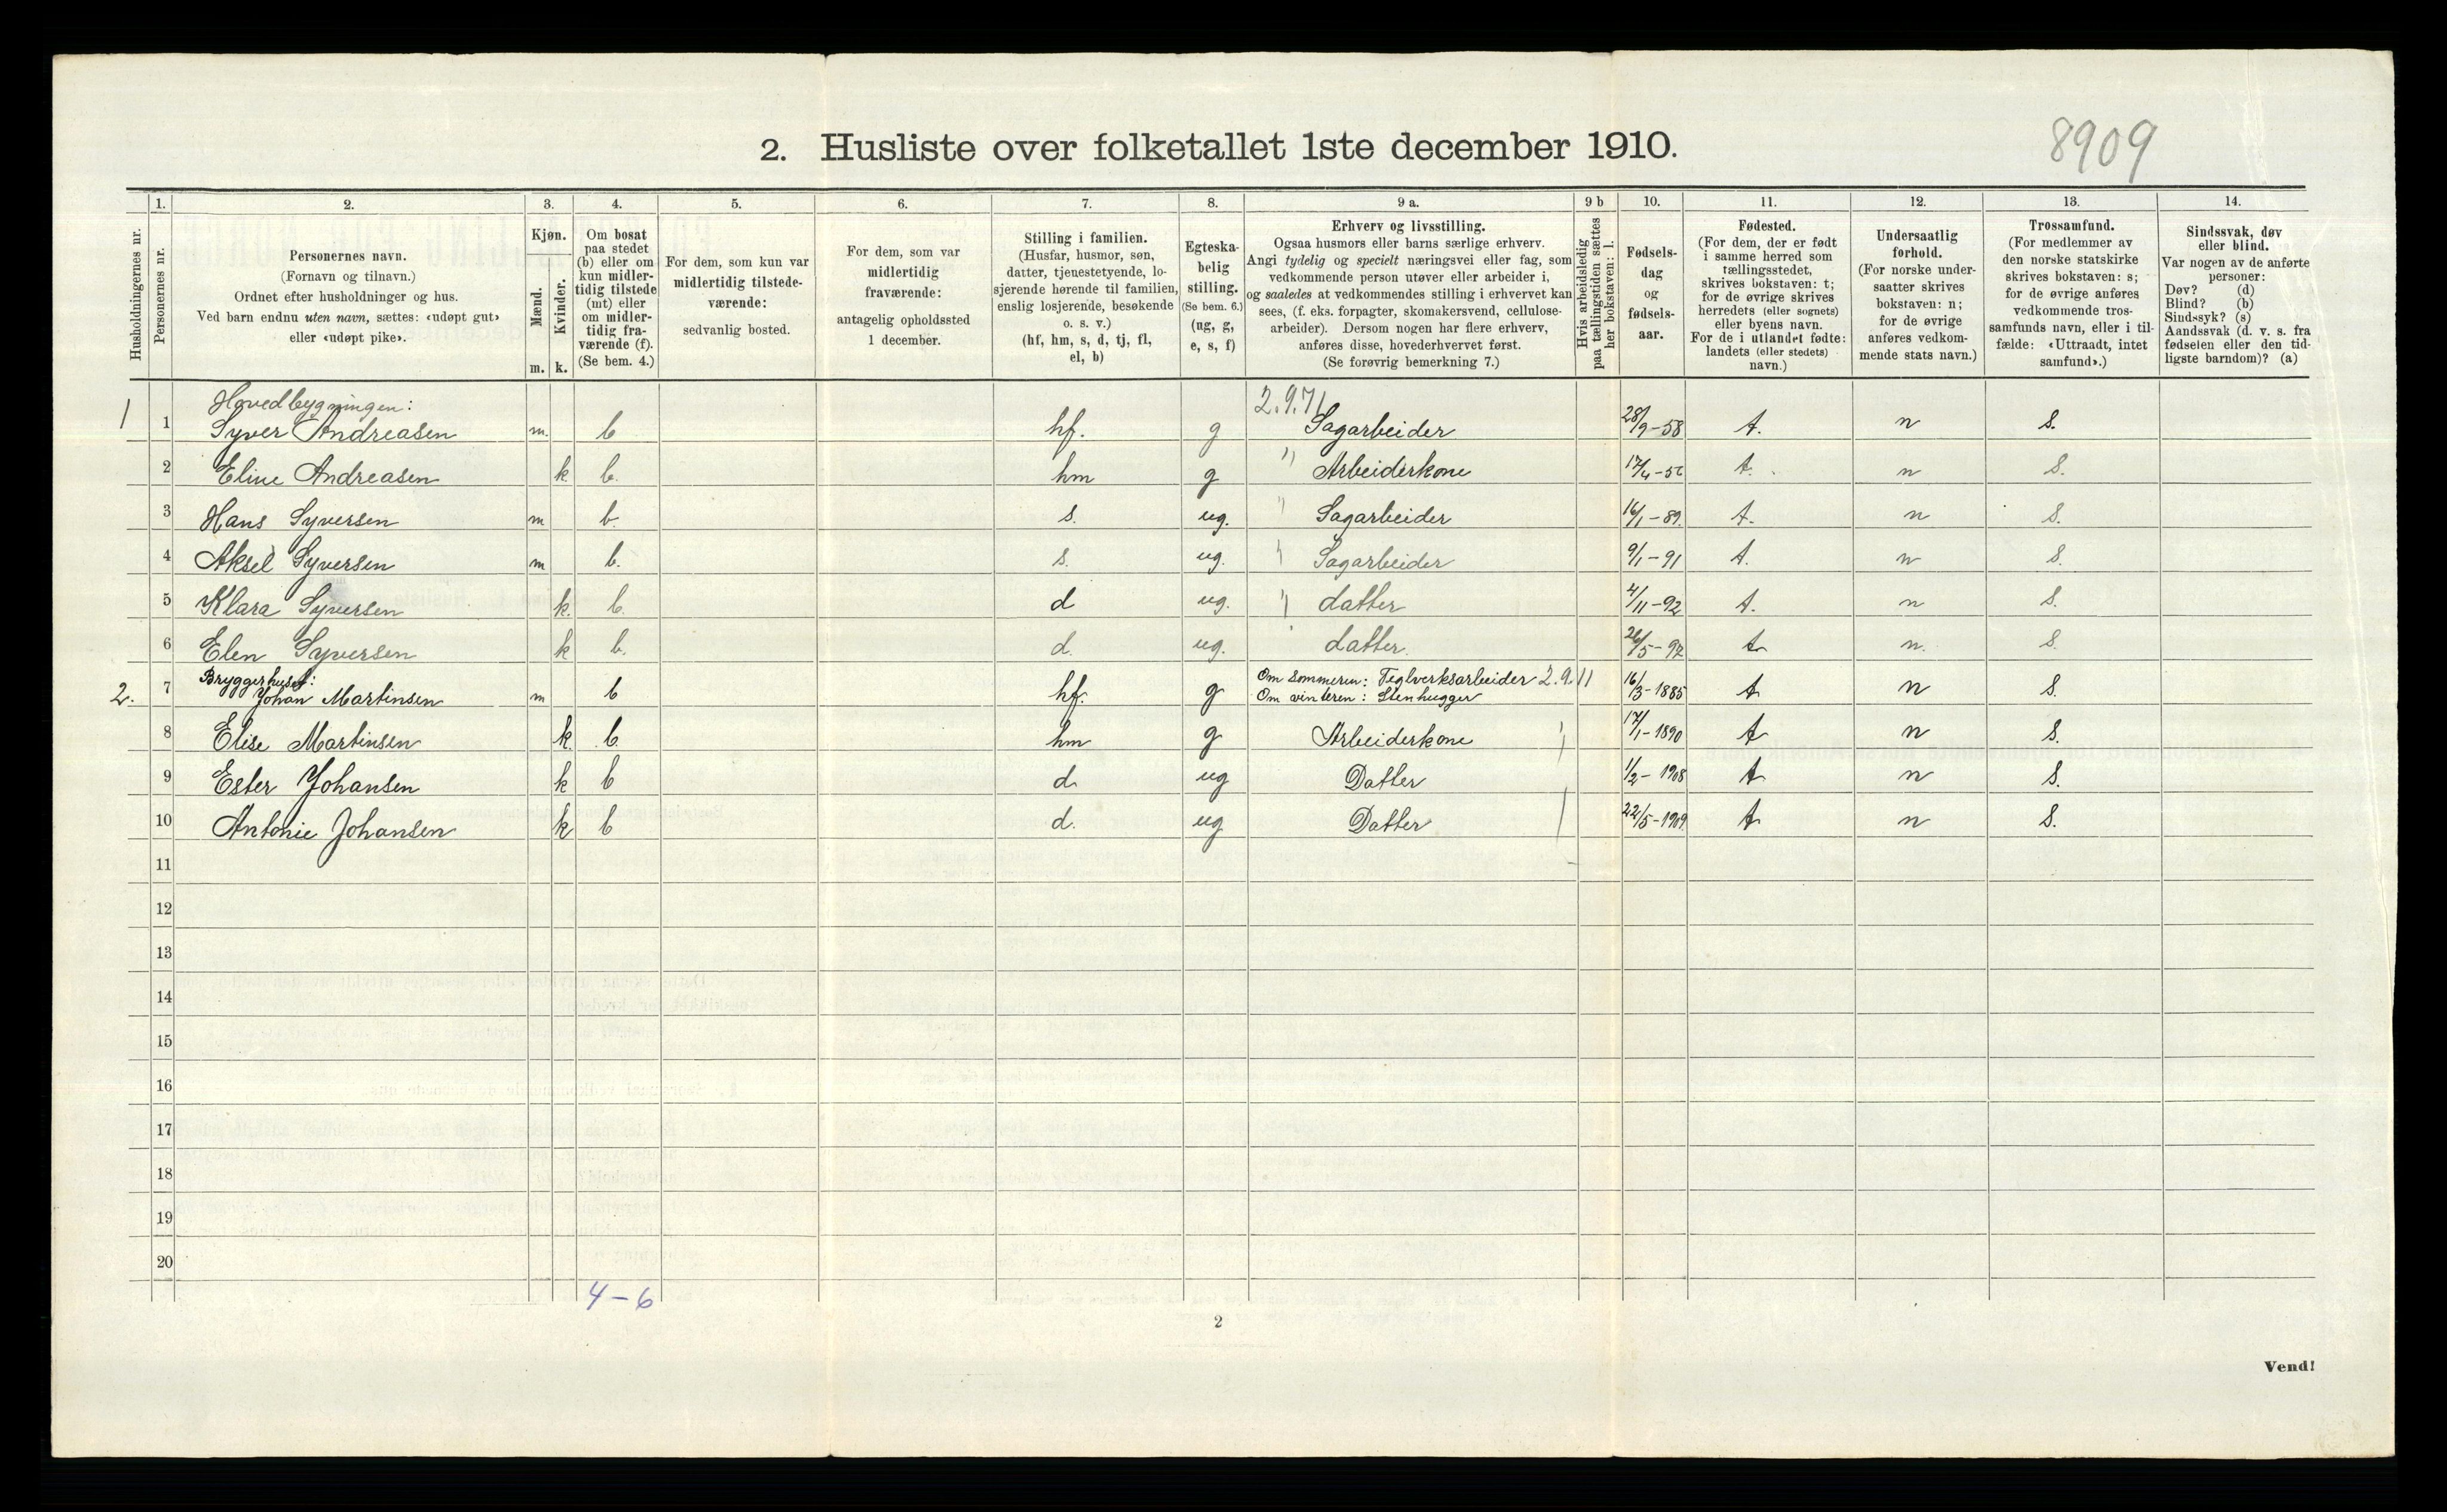 2. Husliste over folketallet 1ste december 1910.
8909
Husholdningernes nr.
1.
Personernes nr.
2.
Personernes navn.
(Fornavn og tilnavn.)
Ordnet efter husholdninger og hus.
Ved barn endnu uten navn, sættes: «udøpt gut»
eller «udøpt pike».
3.
Kjøn.
Mænd.
Kvinder.
m. k.
4.
Om bosat
paa stedet
(b) eller om
kun midler-
tidig tilstede
(mt) eller
om midler-
tidig fra-
værende (f).
(Se bem. 4.)
5.
For dem, som kun var
midlertidig tilstede-
værende:
sedvanlig bosted.
6.
For dem, som var
midlertidig
fraværende:
antagelig opholdssted
1 december.
7.
Stilling i familien.
(Husfar, husmor, søn,
datter, tjenestetyende, lo-
sjerende hørende til familien,
enslig losjerende, besøkende
o. s. v.)
(hf, hm, s, d, tj, fl,
el, b)
8.
Egteska-
belig
stilling.
(Se bem. 6.)
(ug, g,
e, s, f)
9 a.
Erhverv og livsstilling.
Ogsaa husmors eller barns særlige erhverv.
Angi tydelig og specielt næringsvei eller fag, som
vedkommende person utøver eller arbeider i,
og saaledes at vedkommendes stilling i erhvervet kan
sees, (f. eks. forpagter, skomakersvend, cellulose-
arbeider). Dersom nogen har flere erhverv,
anføres disse, hovederhvervet først.
(Se forøvrig bemerkning 7.)
9 b
Hvis arbeidsledig
paa tællingstiden sættes
her bokstaven: l.
10.
Fødsels-
dag
og
fødsels-
aar.
11.
Fødested.
(For dem, der er født
i samme herred som
tællingsstedet,
skrives bokstaven: t;
for de øvrige skrives
herredets (eller sognets)
eller byens navn.
For de i utlandet fødte:
landets (eller stedets)
navn.)
12.
Undersaatlig
forhold.
(For norske under-
saatter skrives
bokstaven: n;
for de øvrige
anføres vedkom-
mende stats navn.)
13.
Trossamfund.
(For medlemmer av
den norske statskirke
skrives bokstaven: s;
for de øvrige anføres
vedkommende tros-
samfunds navn, eller i til-
fælde: «Uttraadt, intet
samfund».)
14.
Sindssvak, døv
eller blind.
Var nogen av de anførte
personer:
Døv? (d)
Blind? (b)
Sindssyk? (s)
Aandssvak (d. v. s. fra
fødselen eller den tid-
ligste barndom)? (a)
Hovedbygningen: 2.9.71
1 1 Syver Andreasen m. b hf. g Sagarbeider 28/9-58 t. n s.
2 Eline Andreasen k b. hm g " Arbeiderkone 17/4-56 t. n s.
3 Hans Syversen m b. s. ug. " Sagarbeider 16/1-89. t. n s.
4 Aksel Syversen m b. s. ug. Sagarbeider 9/1-91 t. n s.
5 Klara Syversen k. b. d ug. " datter 4/11-92 t. n s.
6 Elen Syversen k b. d. ug. datter. 26/5-97 t n. s.
Bryggerhuset: Om sommeren: Teglverksarbeider 2.9.11
2. 7 Johan Martinsen m b hf. g Om vinteren: Stenhugger 16/3-1885 t n s.
8 Elise Martinsen k. b. hm g Arbeiderkone 17/1-1890 t n s.
9 Ester Johansen k b d ug Datter 1/2-1908 t n s.
10 Antonie Johansen k b d. ug Datter 22/5-1909 t n s.
11
12
13
14
15
16
17
18
19
20
4-6
2
Vend!